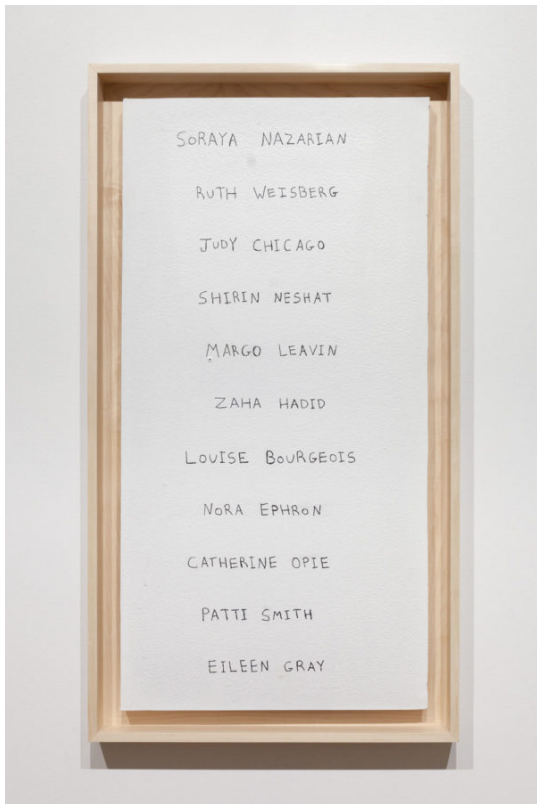 SORAYA NAZARIAN
RUTH WEISBERG
JUDY CHICAGO
SHIRIN NESHAT
MARGO LEAVIN
ZAHA HADID
LOUISE BOURGEOIS
NORA EPHRON
CATHERINE OPIE
PATTI SMITH
EILEEN GRAY